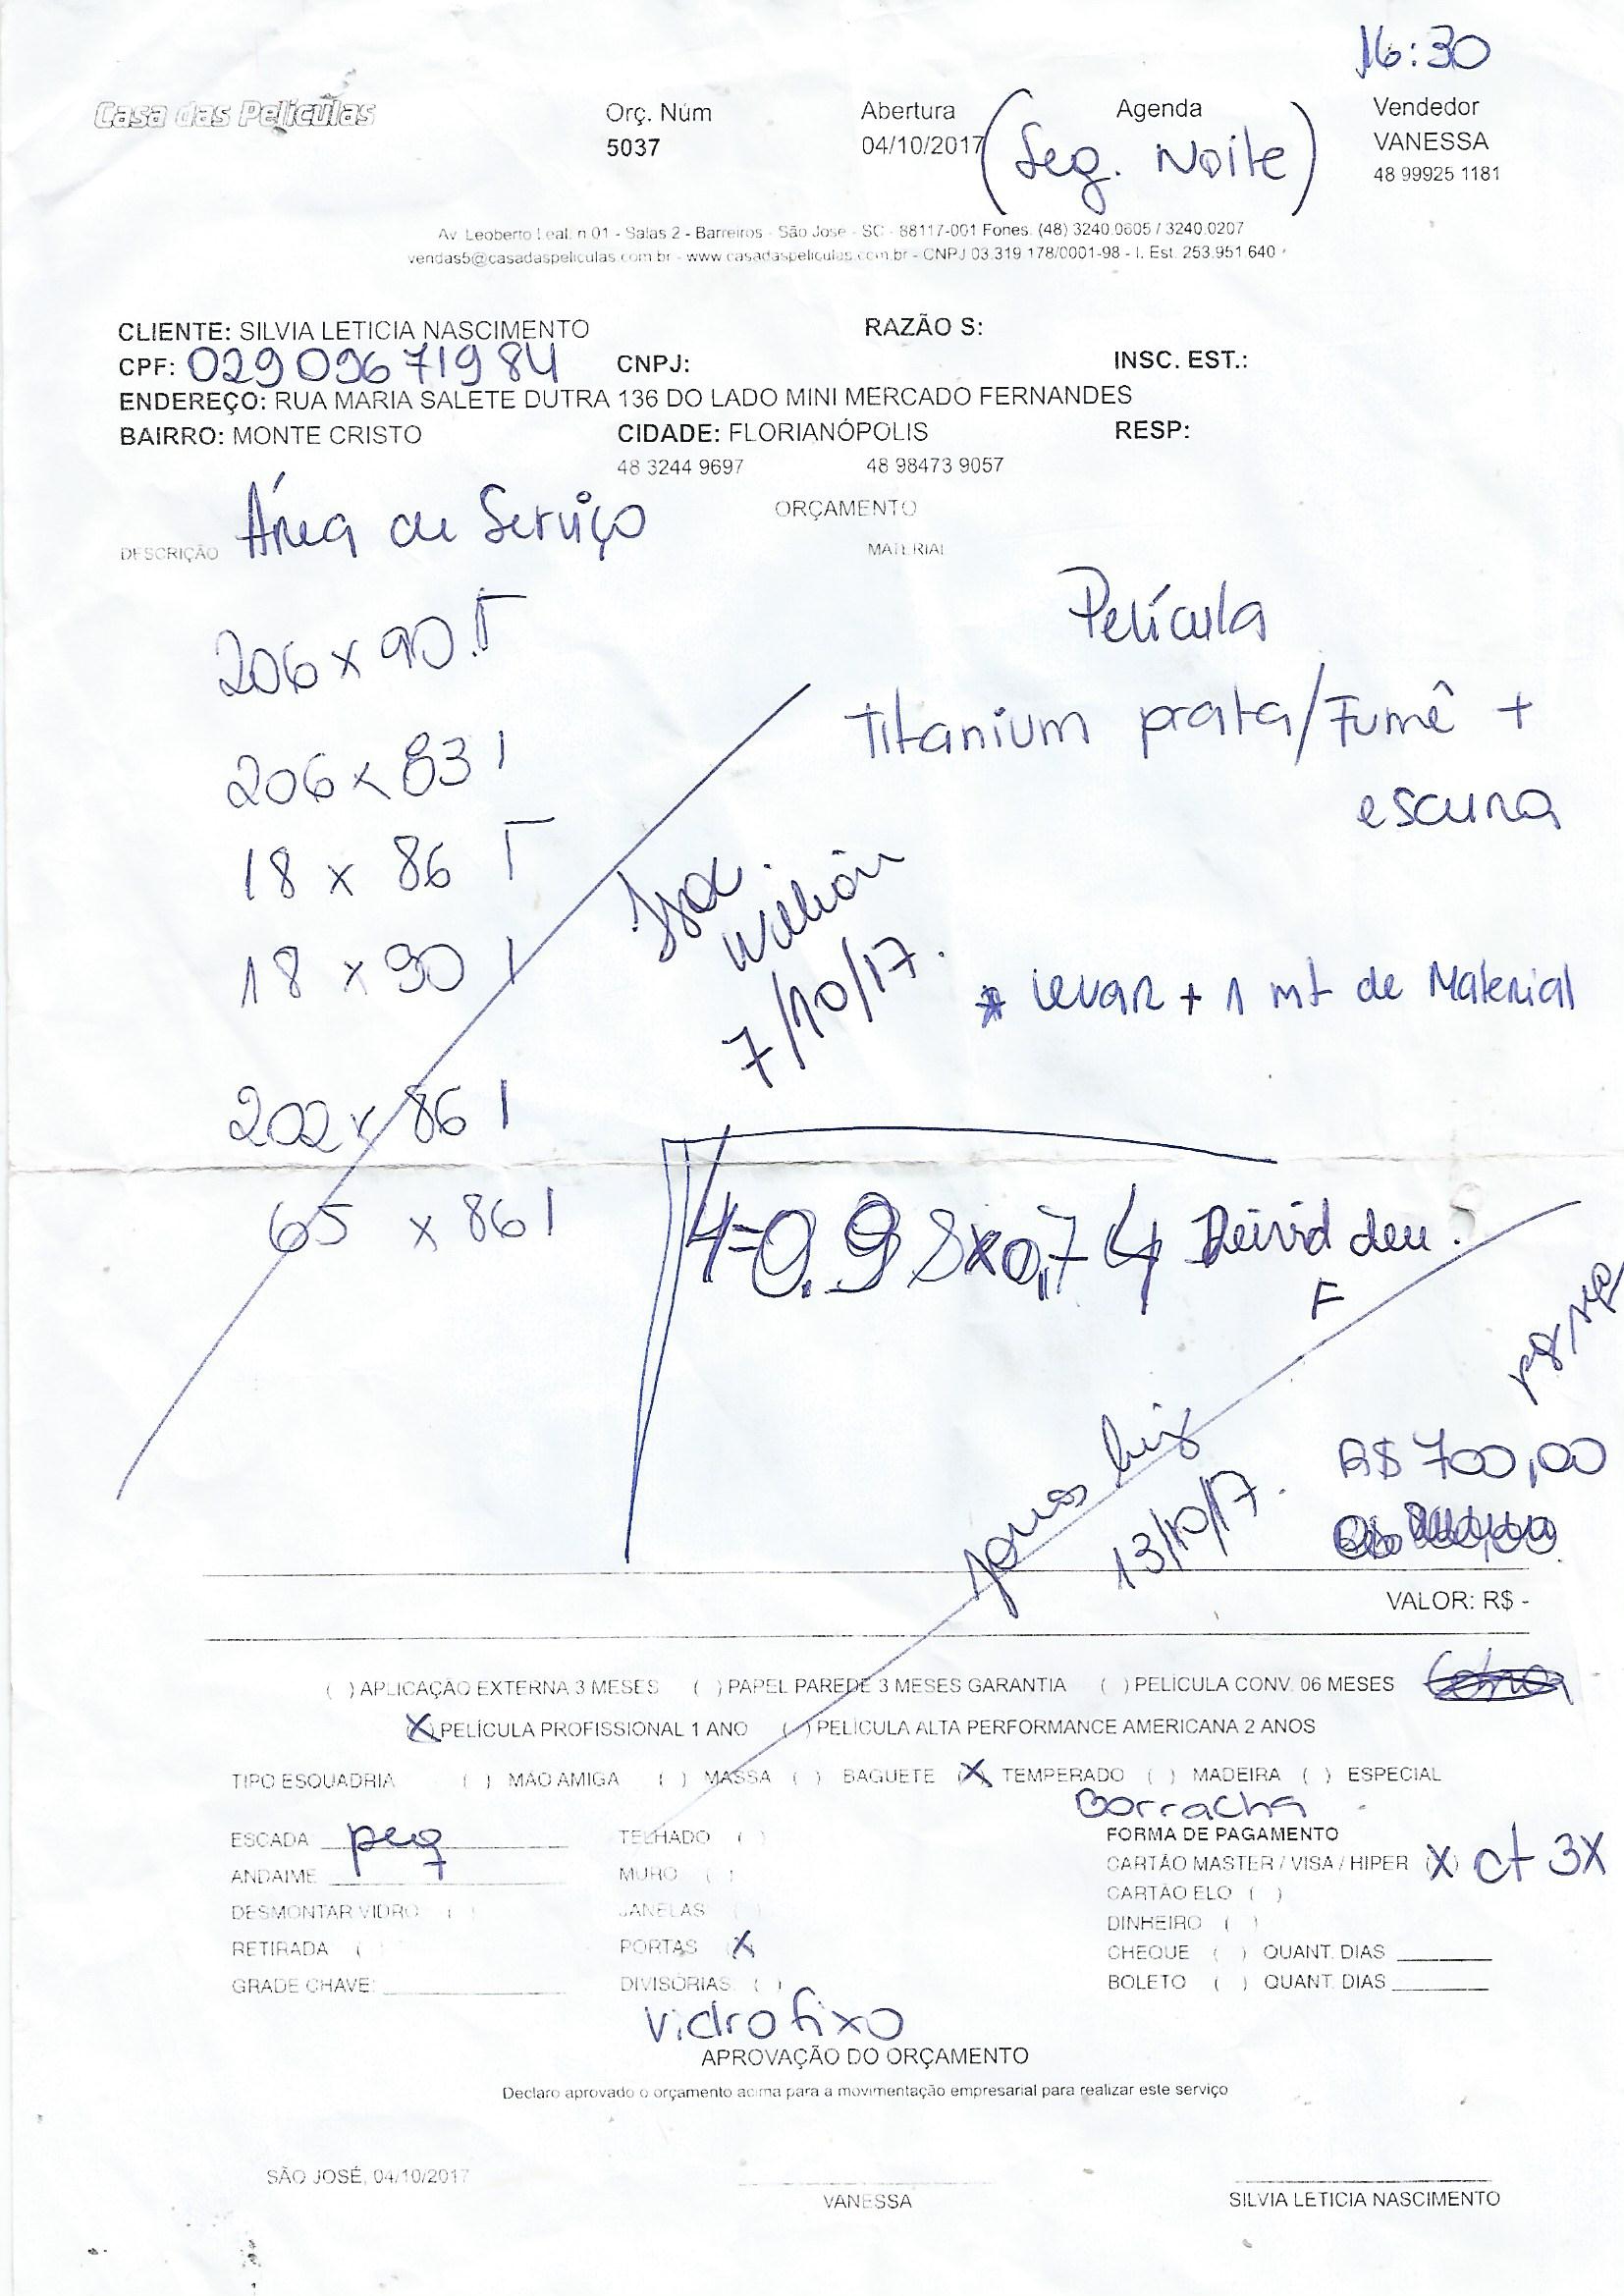 16:30
Casa das Películas
Orç. Núm Abertura Agenda Vendedor
5037 04/10/2017 (Seg. Noite) VANESSA
48 99925 1181
Av. Leoberto Leal, n 01 - Salas 2 - Barreiros - São Jose - SC - 88117-001 Fones. (48) 3240.0605 / 3240.0207
vendas5@casadaspeliculas.com.br - www.casadaspeliculas.com.br - CNPJ 03.319.178/0001-98 - I. Est. 253.951.640
CLIENTE: SILVIA LETICIA NASCIMENTO RAZÃO S:
CPF: 02909671984 CNPJ: INSC. EST.:
ENDEREÇO: RUA MARIA SALETE DUTRA 136 DO LADO MINI MERCADO FERNANDES
BAIRRO: MONTE CRISTO CIDADE: FLORIANÓPOLIS RESP:
48 3244 9697 48 98473 9057
ORÇAMENTO
DESCRIÇÃO Área de Serviço MATERIAL
Película
206 x 90
Titanium prata/Fumê +
escura
206 x 83 1
18 x 86
18 x 90 1
Willian
7/10/17.
* levar + 1 mt de Material
202 x 86 1
65 x 86 1
4=0.98x0,74 Deivid deu.
F
Jonas Luiz
13/10/17.
R$ 700,00
VALOR: R$ -
( ) APLICAÇÃO EXTERNA 3 MESES ( ) PAPEL PAREDE 3 MESES GARANTIA ( ) PELÍCULA CONV. 06 MESES
(X) PELÍCULA PROFISSIONAL 1 ANO ( ) PELÍCULA ALTA PERFORMANCE AMERICANA 2 ANOS
TIPO ESQUADRIA ( ) MÃO AMIGA ( ) MASSA ( ) BAGUETE (X) TEMPERADO ( ) MADEIRA ( ) ESPECIAL
Borracha
ESCADA peq TELHADO ( ) FORMA DE PAGAMENTO
ANDAIME MURO ( ) CARTÃO MASTER / VISA / HIPER (X) ct 3X
DESMONTAR VIDRO ( ) JANELAS ( ) CARTÃO ELO ( )
DINHEIRO ( )
RETIRADA ( ) PORTAS (X) CHEQUE ( ) QUANT. DIAS
GRADE CHAVE: DIVISÓRIAS ( ) BOLETO ( ) QUANT. DIAS
Vidro fixo
APROVAÇÃO DO ORÇAMENTO
Declaro aprovado o orçamento acima para a movimentação empresarial para realizar este serviço
SÃO JOSÉ, 04/10/2017
VANESSA SILVIA LETICIA NASCIMENTO